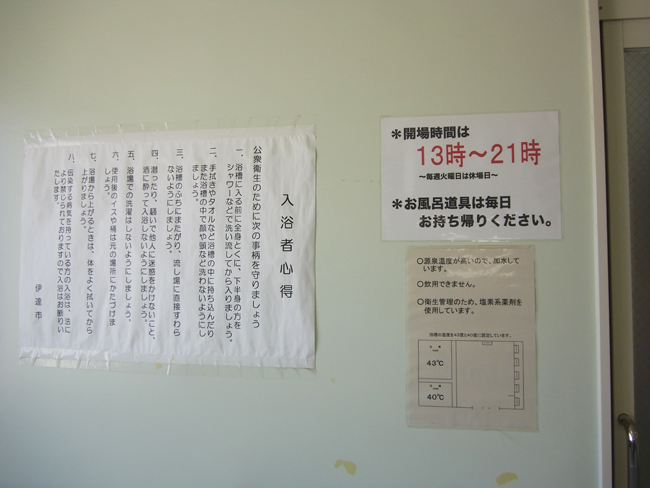 入浴者心得
公衆衛生のために次の事柄を守りましょう
一、浴槽に入る前に全身とくに、下半身の方を
シャワーなどで洗い流してから入りましょう。
二、手拭きやタオルなど浴槽の中に持ち込んだり
また浴槽の中で顔や頭など洗わないようにし
ましょう。
三、浴槽のふちにまたがり、流し場に直接すわら
ないようにしましょう。
四、潜ったり、騒いで他人に迷惑をかけないこと、
酒に酔って入浴しないようにしましょう。
五、浴場での洗濯はしないようにしましょう。
六、使用後のイスや桶は元の場所にかたづけま
しょう。
七、浴場から上がるときは、体をよく拭いてから
上がりましょう。
八、伝染する病気を持っている方の入浴は、法に
より禁じられておりますので入浴はお断りい
たします。
伊達市
＊開場時間は
13時～21時
～毎週火曜日は休場日～
＊お風呂道具は毎日
お持ち帰りください。
○源泉温度が高いので、加水して
います。
○飲用できません。
○衛生管理のため、塩素系薬剤を
使用しています。
浴槽の温度を43度と40度に設定しています。
43℃
40℃